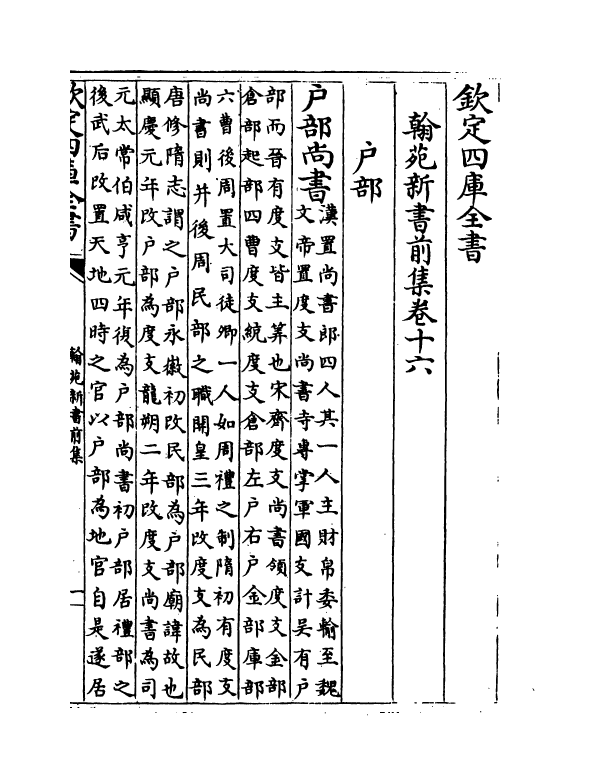 欽定四庫全書
翰苑新書前集卷十六
户部
户部尚書
漢置尚書郎四人其一人主財帛委輸至魏
文帝置度支尚書寺專掌軍國支計吳有户
部而晉有度支皆主筭也宋齊度支尚書領度支金部
倉部起部四曹度支統度支倉部左户右户金部庫部
六曹後周置大司徒卿一人如周禮之制隋初有度支
尚書則并後周民部之職開皇三年改度支為民部
唐修隋志謂之户部永徽初改民部為户部廟諱故也
顯慶元年改户部為度支龍朔二年改度支尚書為司
元太常伯咸亨元年復為户部尚書初户部居禮部之
後武后改置天地四時之官以户部為地官自是遂居
欽定四庫全書
翰苑新書前集
一